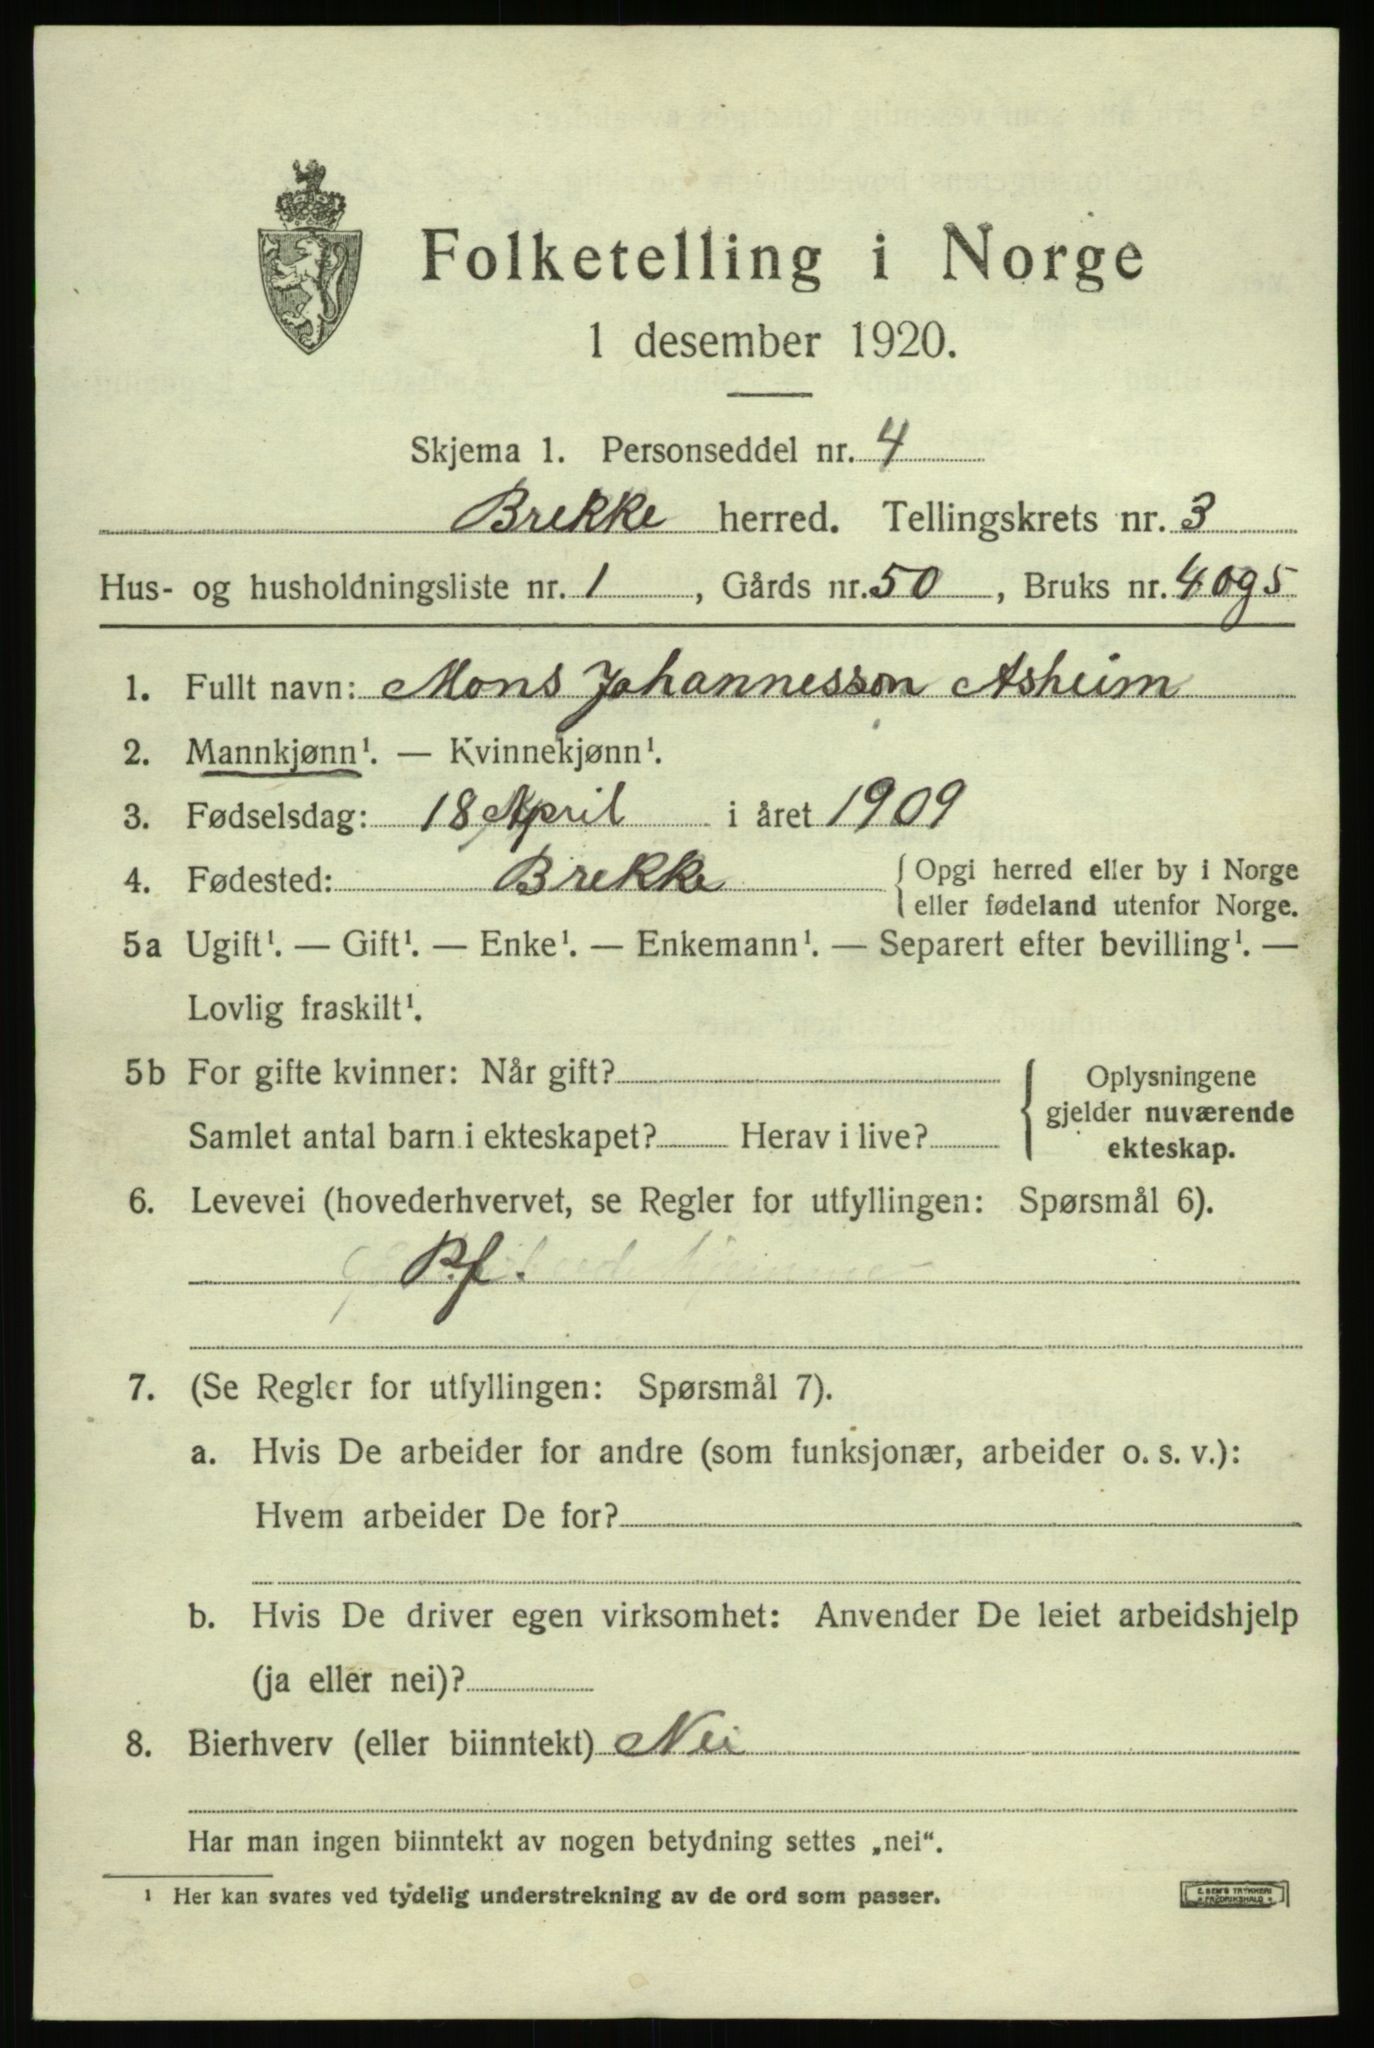 Folketelling i Norge
1 desember 1920.
Skjema 1. Personseddel nr. 4
Brekke herred. Tellingskrets nr. 3
Hus- og husholdningsliste nr. 1, Gårds nr. 50, Bruks nr. 4 og 5
1. Fullt navn: Mons Johannesson Asheim
2. Mannkjønn¹. — Kvinnekjønn¹.
3. Fødselsdag: 18 April i året 1909
4. Fødested: Brekke { Opgi herred eller by i Norge
eller fødeland utenfor Norge.
5a Ugift¹. — Gift¹. — Enke¹. — Enkemann¹. — Separert efter bevilling¹. —
Lovlig fraskilt¹.
5b For gifte kvinner: Når gift?
Samlet antal barn i ekteskapet? Herav i live?
{ Oplysningene
gjelder nuværende
ekteskap.
6. Levevei (hovederhvervet, se Regler for utfyllingen: Spørsmål 6).
P.f.
7. (Se Regler for utfyllingen: Spørsmål 7).
a. Hvis De arbeider for andre (som funksjonær, arbeider o. s. v.):
Hvem arbeider De for?
b. Hvis De driver egen virksomhet: Anvender De leiet arbeidshjelp
(ja eller nei)?
8. Bierhverv (eller biinntekt) Nei
Har man ingen biinntekt av nogen betydning settes „nei“.
¹ Her kan svares ved tydelig understrekning av de ord som passer.